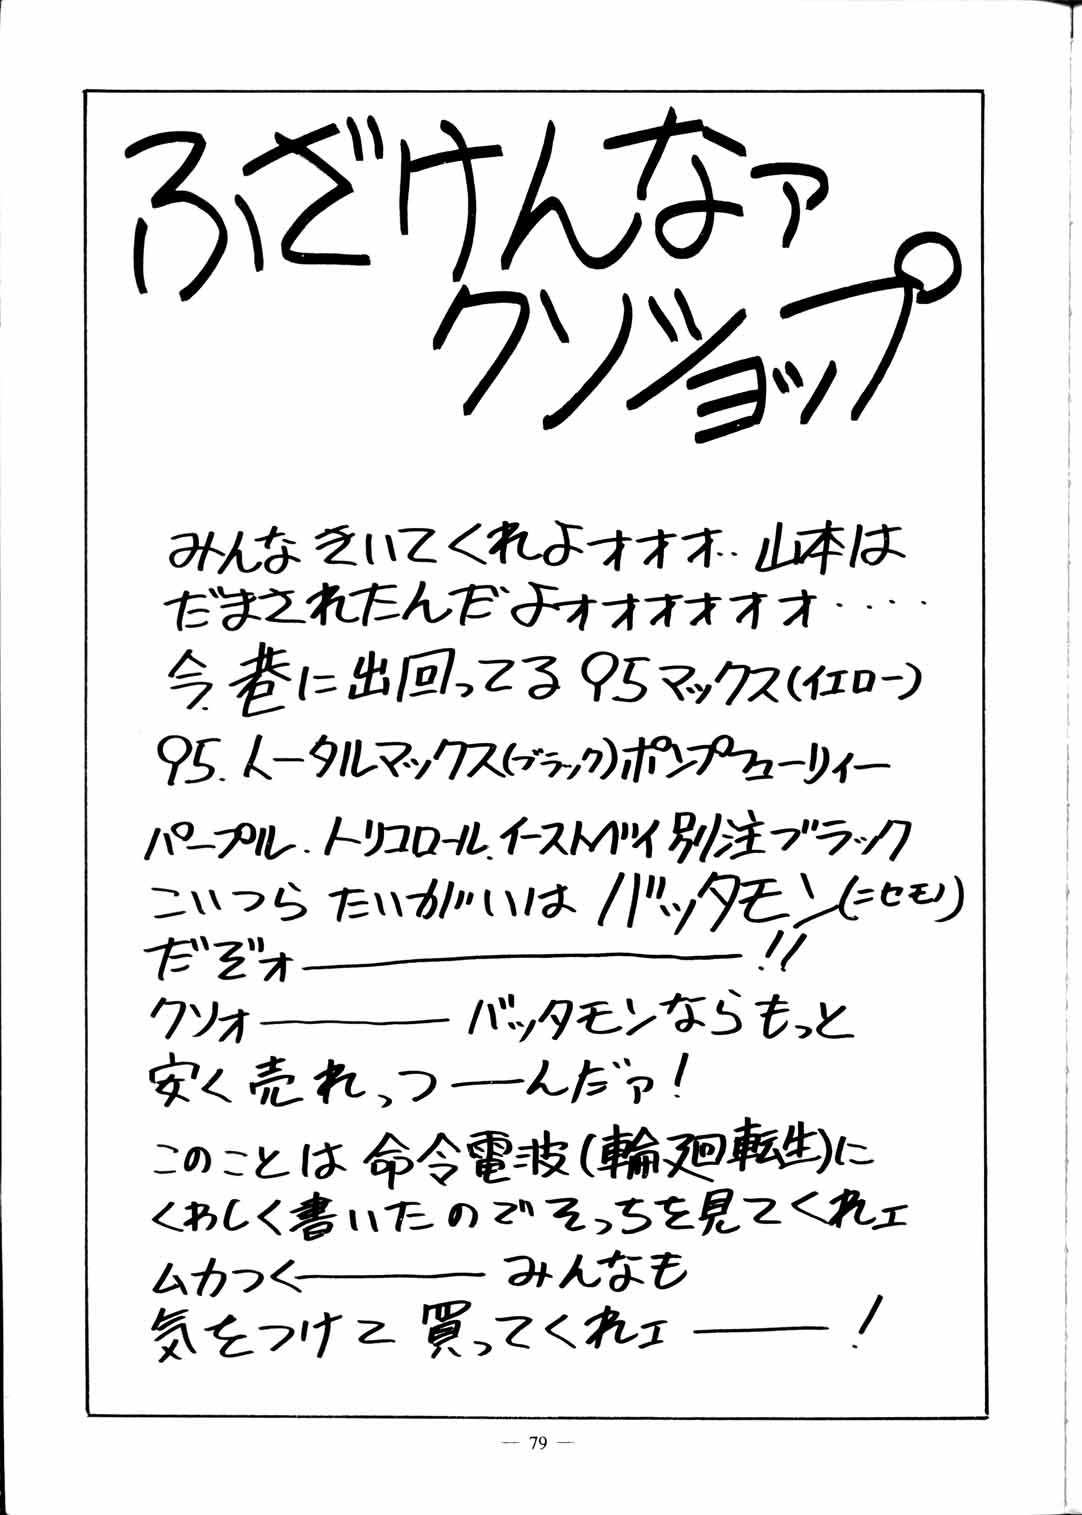 ふざけんなァ
クソショップ
みんなきいてくれよォオオ‥山本は
だまされたんだよォォオオオオ‥‥
今.巷に出回ってる95マックス(イエロー)
95.トータルマックス(ブラック)ポンプフューリィー
パープル.トリコロール.イーストベイ別注ブラック
こいつらたいがいはバッタモン(ニセモノ)
だぞォ――――!!
クソォ――バッタモンならもっと
安く売れっつ――んだァ!
このことは命令電波(輪廻転生)に
くわしく書いたのでそっちを見てくれェ
ムカつく――みんなも
気をつけて買ってくれェ――!
― 79 ―